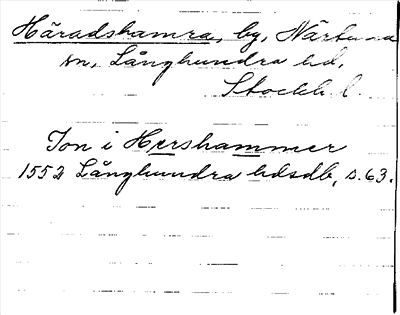 Häradshamra, by, Närtuna
sn, Långhundra hd,
Stockh. l.
Jon i Hershammer
1552 Långhundra hdsdb, s. 63.